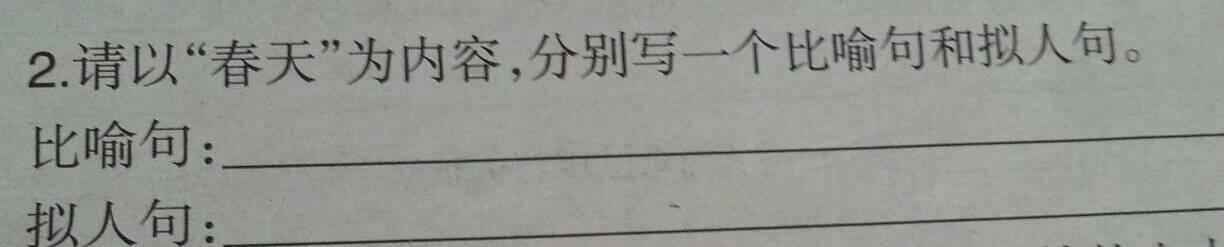 2.请以“春天”为内容,分别写一个比喻句和拟人句。
比喻句:
拟人句: